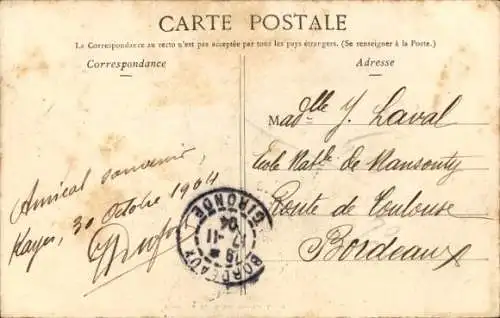 CARTE POSTALE
La Correspondance au recto n'est pas acceptée par tous les pays étrangers. (Se renseigner à la Poste.)
Correspondance
Adresse
Amical souvenir,
Kayes, 30 Octobre 1904
Madlle J. Laval
Ecole Natle de Mansonty
Route de Toulouse
Bordeaux
BORDEAUX
GIRONDE
7-11
04